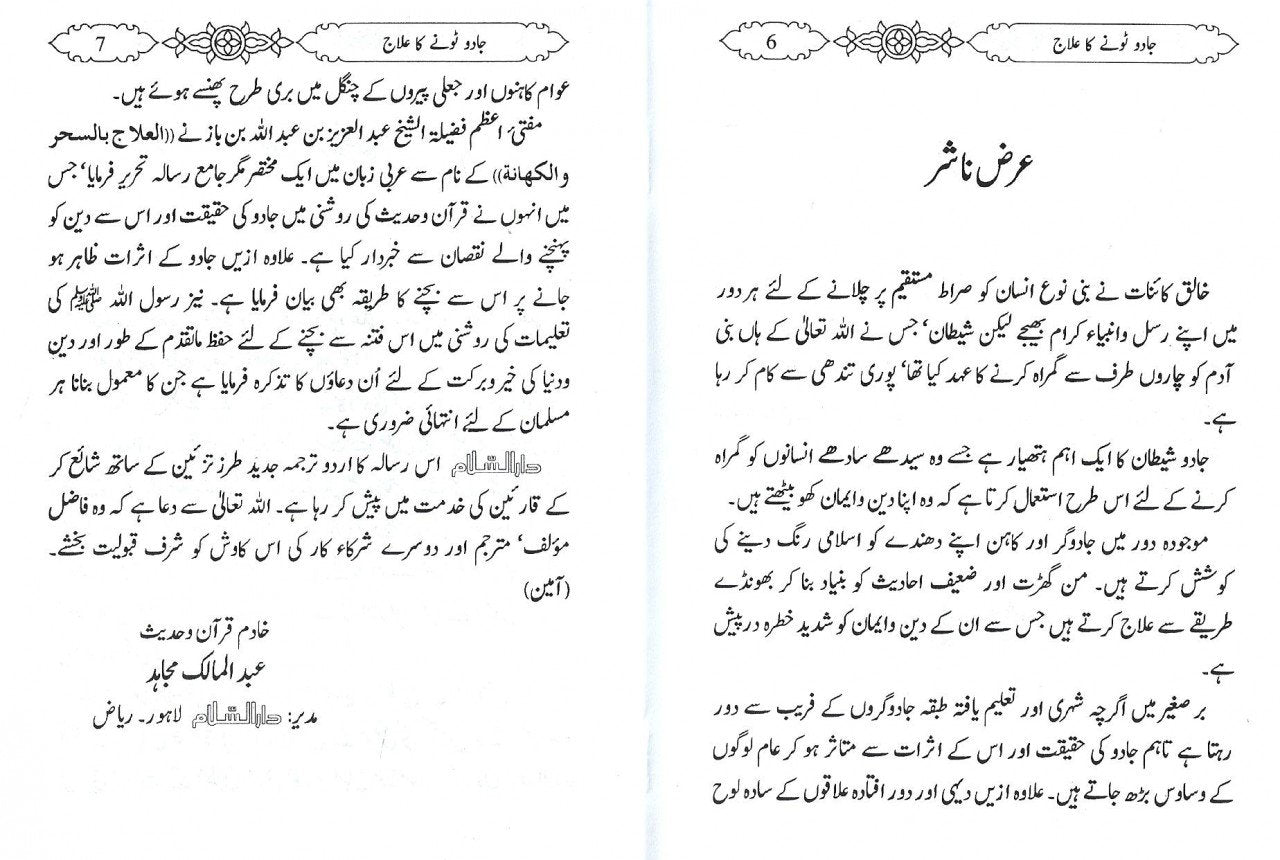 جادو ٹونے کا علاج
6
عرض ناشر
خالق کائنات نے بنی نوع انسان کو صراط مستقیم پر چلانے کے لئے ہر دور
میں اپنے رسل وانبیاء کرام بھیجے لیکن شیطان‘ جس نے اللہ تعالیٰ کے ہاں بنی
آدم کو چاروں طرف سے گمراہ کرنے کا عہد کیا تھا‘ پوری تندھی سے کام کر رہا
ہے۔
جادو شیطان کا ایک اہم ہتھیار ہے جسے وہ سیدھے سادھے انسانوں کو گمراہ
کرنے کے لئے اس طرح استعمال کرتا ہے کہ وہ اپنا دین وایمان کھو بیٹھتے ہیں۔
موجودہ دور میں جادوگر اور کاہن اپنے دھندے کو اسلامی رنگ دینے کی
کوشش کرتے ہیں۔ من گھڑت اور ضعیف احادیث کو بنیاد بنا کر بھونڈے
طریقے سے علاج کرتے ہیں جس سے ان کے دین وایمان کو شدید خطرہ درپیش
ہے۔
بر صغیر میں اگرچہ شہری اور تعلیم یافتہ طبقہ جادوگروں کے فریب سے دور
رہتا ہے تاہم جادو کی حقیقت اور اس کے اثرات سے متاثر ہو کر عام لوگوں
کے وساوس بڑھ جاتے ہیں۔ علاوہ ازیں دیہی اور دور افتادہ علاقوں کے سادہ لوح
جادو ٹونے کا علاج
7
عوام کاہنوں اور جعلی پیروں کے چنگل میں بری طرح پھنسے ہوئے ہیں۔
مفتیٔ اعظم فضیلۃ الشیخ عبد العزیز بن عبد اللہ بن باز نے ((العلاج بالسحر
والكهانة)) کے نام سے عربی زبان میں ایک مختصر مگر جامع رسالہ تحریر فرمایا‘ جس
میں انہوں نے قرآن وحدیث کی روشنی میں جادو کی حقیقت اور اس سے دین کو
پہنچنے والے نقصان سے خبردار کیا ہے۔ علاوہ ازیں جادو کے اثرات ظاہر ہو
جانے پر اس سے بچنے کا طریقہ بھی بیان فرمایا ہے۔ نیز رسول اللہ ﷺ کی
تعلیمات کی روشنی میں اس فتنہ سے بچنے کے لئے حفظ ماتقدم کے طور اور دین
ودنیا کی خیر وبرکت کے لئے اُن دعاؤں کا تذکرہ فرمایا ہے جن کا معمول بنانا ہر
مسلمان کے لئے انتہائی ضروری ہے۔
دارالسّلام اس رسالہ کا اردو ترجمہ جدید طرز تزئین کے ساتھ شائع کر
کے قارئین کی خدمت میں پیش کر رہا ہے۔ اللہ تعالیٰ سے دعا ہے کہ وہ فاضل
مؤلف‘ مترجم اور دوسرے شرکاء کار کی اس کاوش کو شرف قبولیت بخشے۔
(آمین)
خادم قرآن وحدیث
عبد المالک مجاہد
مدیر: دارالسّلام لاہور۔ ریاض